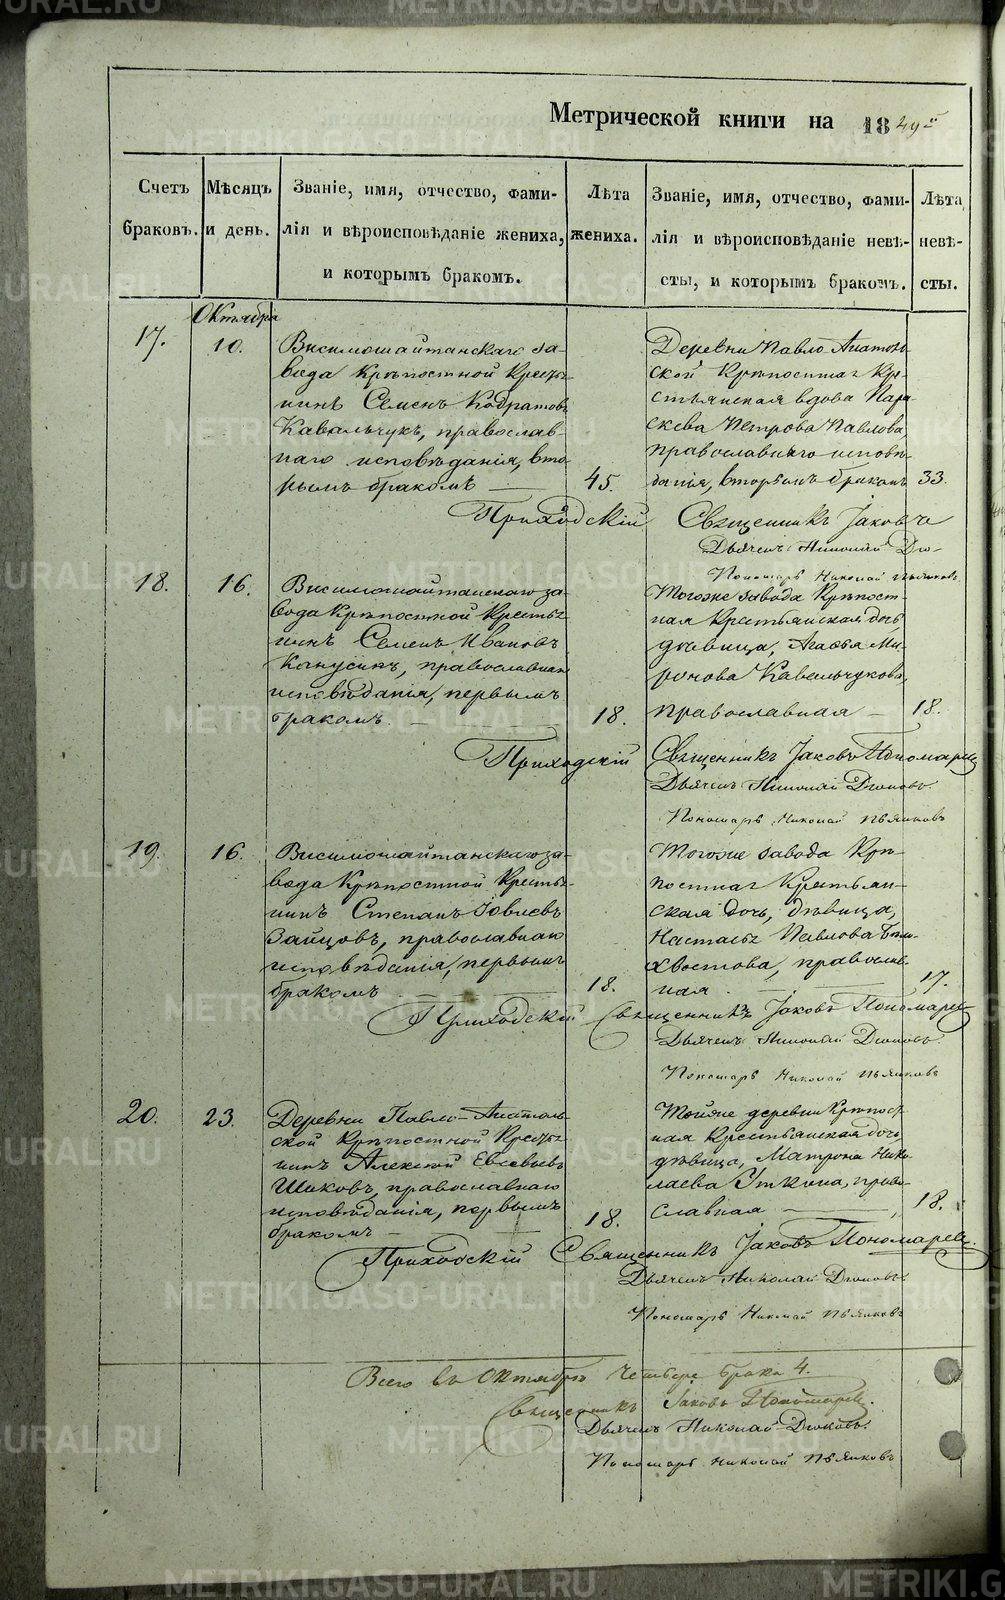 Метрической книги на 1849й
Счетъ браковъ.
Мѣсяцъ и день.
Званіе, имя, отчество, фами-
лія и вѣроисповѣданіе жениха,
и которымъ бракомъ.
Лѣта жениха.
Званіе, имя, отчество, фами-
лія и вѣроисповѣданіе невѣ-
сты, и которымъ бракомъ.
Лѣта невѣ-
сты.
Октября
17.
10.
Висимошайтанскаго за-
вода Крѣпостной Кресть-
нинъ Семенъ Кодратовъ
Кавальчукъ, православ-
наго исповѣданія, вто-
рымъ бракомъ
45.
Деревни Павло-Анатоль-
ской Крѣпостная Кре-
стьянская вдова Пара-
скева Петрова Павлова,
православнаго исповѣ-
данія, вторымъ бракомъ
33.
Приходскій Священникъ Іаковъ
Дьячекъ Николай Дю-
Пономарь Николай Пьянковъ
18.
16.
Висимошайтанскаго за-
вода Крѣпостной Кресть-
нинъ Семенъ Ивановъ
православнаго
исповѣданія, первымъ
бракомъ
18.
Тогоже завода Крѣпост-
ная Крестьянская дочь
дѣвица, Агафья Ми-
ронова Кавальчукова,
православная
18.
Приходскій Священникъ Іаковъ Пономаревъ
Дьячекъ Николай Дюковъ.
Пономарь Николай Пьянковъ
19.
16.
Висимошайтанскаго за-
вода Крѣпостной Кресть-
нинъ Степанъ Іовлевъ
Зайцовъ, православнаго
исповѣданія, первымъ
бракомъ
18.
Тогоже завода Крѣ-
постная Крестьян-
ская дочь, дѣвица,
Настасья Павлова Бѣло-
хвостова, православ-
ная
17.
Приходскій Священникъ Іаковъ Пономаревъ
Дьячекъ Николай Дюковъ.
Пономарь Николай Пьянковъ
20.
23.
Деревни Павло-Анатоль-
ской Крѣпостной Кресть-
нинъ Алексѣй Евсевьевъ
Шиковъ, православнаго
исповѣданія, первымъ
бракомъ
18.
Тойже деревни Крѣпост-
ная Крестьянская дочь
дѣвица, Матрона Нико-
лаева Уткина, право-
славная
18.
Приходскій Священникъ Іаковъ Пономаревъ.
Дьячекъ Николай Дюковъ.
Пономарь Николай Пьянковъ
Всего въ Октябрѣ Четыре брака 4.
Священникъ Іаковъ Пономаревъ.
Дьячекъ Николай Дюковъ.
Пономарь Николай Пьянковъ
METRIKI.GASO-URAL.RU